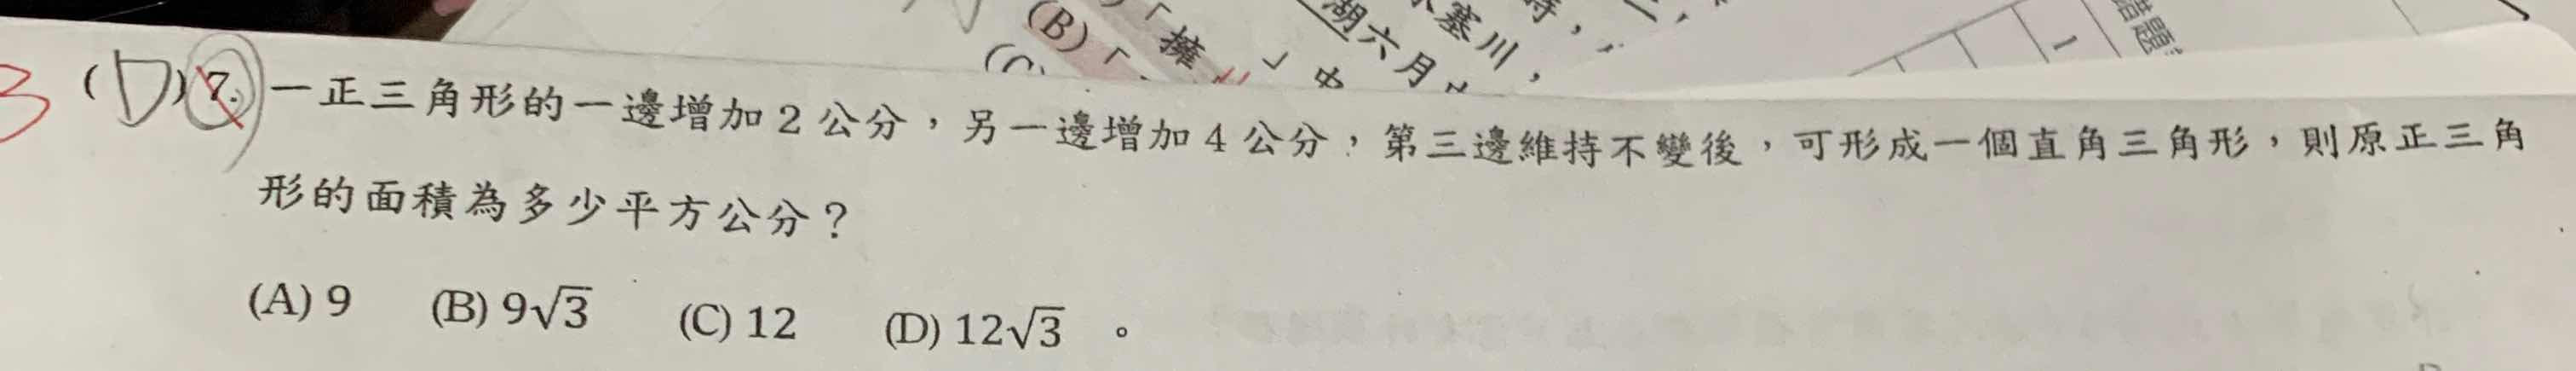 (B)「擁
湖六月
塞川,
錯題
3 (D) 7. 一正三角形的一邊增加 2 公分,另一邊增加 4 公分,第三邊維持不變後,可形成一個直角三角形,則原正三角
形的面積為多少平方公分?
(A) 9 (B) 9√3 (C) 12 (D) 12√3 。